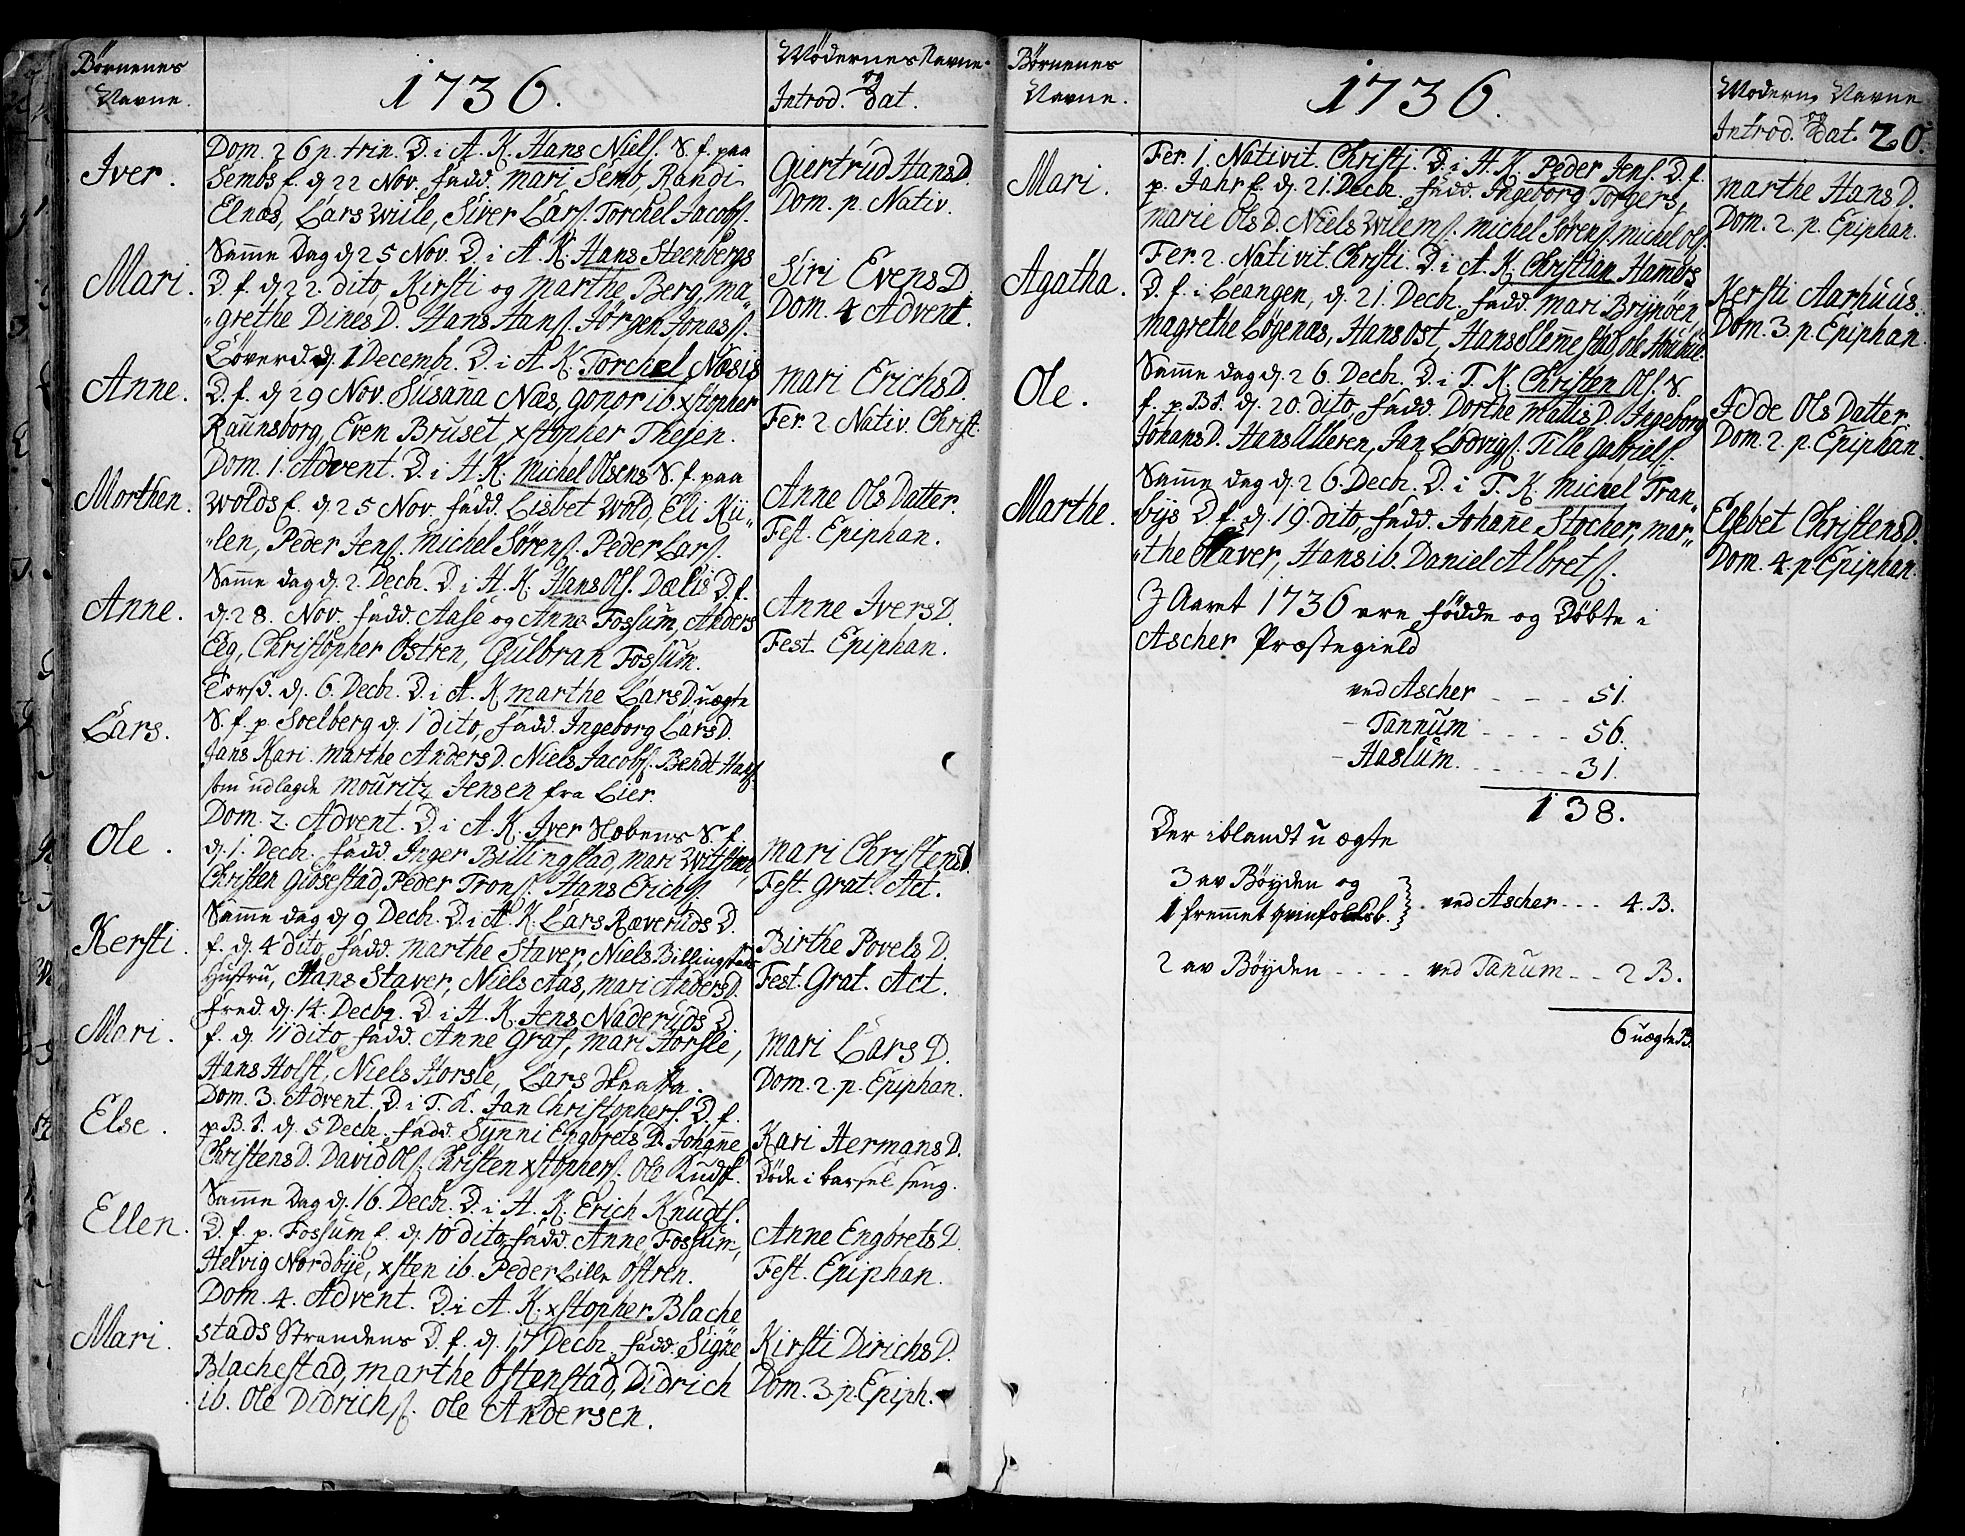 Børnenes
Navne.
1736.
Mødernes Navne
og
Introd. Dat.
Iver.
Dom. 26 p. trin. D. i A. K. Hans Niels. S. f. paa
Sembs E. d. 22 Nov. fadd. Mari Semb, Randi
Elnæs, Lars Wiile, Siver Lars. Torchel Jacobs.
Giertrud Hans D.
Dom. p. Nativ.
Mari.
Samme Dag d. 25 Nov. D. i A. K. Hans Steenbergs
D. f. d. 22. dito, Kirsti og Marthe Berg, Ma-
grethe Dines D. Hans Hans. Jörgen Jonas.
Siri Evens D.
Dom. 4 Advent.
Anne.
Löverd. d. 1 Decembr. D. i A. K. Torchel Næsis
D. f. d. 29 Nov. Susana Næs, Gonor ib. xstopher
Raunsborg, Even Bruset, xstopher Thesen.
Mari Erichs D.
Fer. 2 Nativ. Christ.
Morthen.
Dom. 1. Advent. D. i A. K. Michel Olsens S. f. paa
Wolds E. d. 25 Nov. fadd. Lisbet Wold, Eli Kii-
len, Peder Jens. Michel Sörens. Peder Lars.
Anne Ols Datter.
Fest. Epiphan.
Anne.
Samme dag d. 2. Decbr. D. i A. K. Hans Ols. Dælis D. f.
d. 28. Nov. fadd. Aase og Anne Fossum, Anders
Eeg, Christopher Östren, Gulbran Fossum.
Anne Ivers D.
Fest. Epiphan.
Lars.
Torsd. d. 6. Decbr. D. i A. K. Marthe Lars D. uægte
S. f. p. Soelberg d. 1 dito, fadd. Ingeborg Lars D.
Jans Kari. Marthe Anders D. Niels Jacobs. Bendt Hans.
som udlagde Mouritz Jensen fra Lier.
Ole.
Dom. 2. Advent. D. i A. K. Iver Slobens S. f.
d. 1. Decbr. fadd. Inger Billingstad, Mari
Christen Giösestad, Peder Trons. Hans Erichs.
Mari Christens D.
Fest. Grat. Act.
Kersti.
Samme dag d. 9 Decbr. D. i A. K. Lars Ræveruds D.
f. d. 4 dito, fadd. Marthe Staver, Niels Billingstads
Hustru, Hans Staver, Niels Aas, Mari Anders D.
Birthe Povels D.
Fest. Grat. Act.
Mari.
Fred. d. 14. Decbr. D. i A. K. Jens Naderuds D.
f. d. 11 dito, fadd. Anne Graf, Mari Horsle,
Hans Holst, Niels Horsle, Lars Skaatta.
Mari Lars D.
Dom. 2. p. Epiphan.
Else.
Dom. 3. Advent, D. i T. K. Jan Christophers. D. f.
p. B. S. d. 5 Decbr. fadd. Synni Engbrets D. Johanne
Christens D. David Ols. Christen xstophers. Ole Kuds.
Kari Hermans D.
Døde i barsel seng.
Ellen.
Samme Dag d. 16. Decbr. D. i A. K. Erich Knudts.
D. f. p. Fossum E. d. 10 dito, fadd. Anne Fossum,
Helvig Nordbye, xsten ib. Peder Lille Östren.
Anne Engbrets D.
Fest. Epiphan.
Mari.
Dom. 4. Advent. D. i A. K. xstopher Blache
stads Strandens D. f. d. 17 Decbr. fadd. Signe
Blachestad, Marthe Ostenstad, Didrich
ib. Ole Didrichs. Ole Andersen.
Kirsti Dirichs D.
Dom. 3. p. Epiph.
Børnenes
Navne.
1736.
Modern. Navne
og
Introd. Dat. 20.
Mari.
Fer. 1. Nativit. Christi. D. i A. K. Peder Jens. D. f.
p. Jahr E. d. 21. Decbr. fadd. Ingeborg Torgers,
Marie Ols D. Niels Wilems. Michel Sörens. Michel Ols.
Marthe Hans D.
Dom. 2. p. Epiphan.
Agatha.
Fer. 2. Nativit. Christi. D. i A. K. Christian Hammers
D. f. i Leangen, d. 21. Decbr. fadd. Mari Brijnöen,
Magrethe Løgenæs, Hans Ost, Hans Slemmestad, Ole
Kersti Aarhuus.
Dom. 3. p. Epiphan.
Ole.
Samme dag d. 26. Decbr. D. i T. K. Christen Ols. S.
f. p. B. S. d. 20. dito, fadd. Dorthe Mattis D. Ingeborg
Johans D. Hans Ulleren, Jan Lodvigs. Tille Gabriels.
Idde Ols Datter
Dom. 2. p. Epiphan.
Marthe.
Samme dag d. 26. Decbr. D. i T. K. Michel Tran-
bijs D. f. d. 19. dito, fadd. Johanne Stocher, Mar-
the Staver, Hans ib. Daniel Albrets.
Elsebet Christens D.
Dom. 4. p. Epiphan.
I Aaret 1736 ere födde og Döbte i
Ascher Præstegield
ved Ascher - - - 51.
- Tannum - - - - 56.
- Haslum. - - - - - 31.
138.
Der iblandt u ægte
3 av Bøyden og
1 fremmet qvinfolcksb. } . ved Ascher - - - 4. B.
2 av Bøyden - - - - ved Tanum - - 2 B.
6 uægte B.